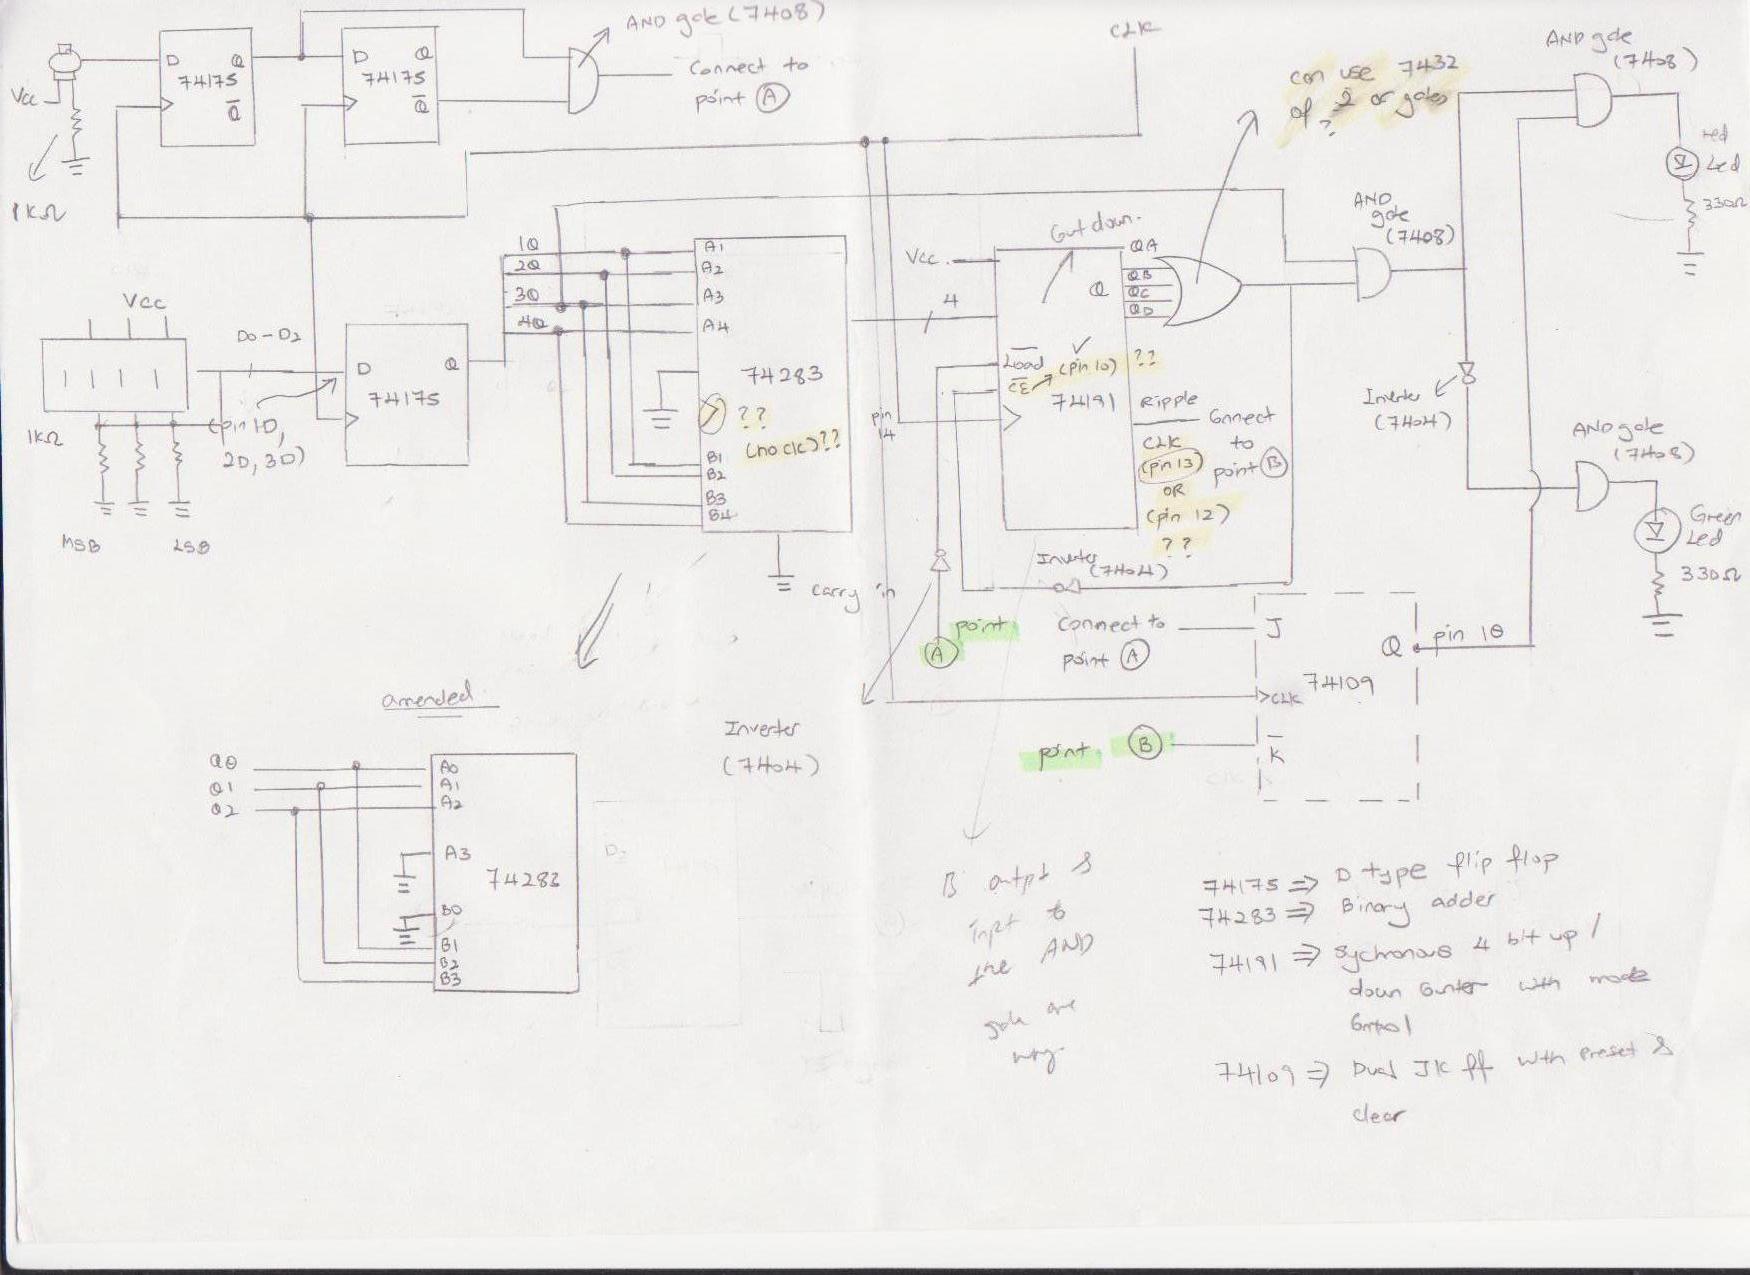 AND gate (7408)
Connect to
point (A)
D Q
74175
Q̅
D Q
74175
Q̅
Vcc
1KΩ
CLK
can use 7432
of 2 or gates
?
AND gate
(7408)
red
Led
330Ω
AND
gate
(7408)
Inverter
(7404)
AND gate
(7408)
Green
Led
330Ω
Vcc
D0-D2
1KΩ
(pin 1D,
2D, 3D)
MSB LSB
D Q
74175
1Q
2Q
3Q
4Q
A1
A2
A3
A4
74283
> ??
(no clc)??
B1
B2
B3
B4
carry in
Count down.
Vcc.
4
QA
QB
QC
QD
Q
Load (pin 10) ??
CE
74191
pin
14
Ripple
CLK
(pin 13)
OR
(pin 12)
??
Connect
to
point (B)
Inverter
(7404)
point
(A)
Connect to
point (A)
J
Q pin 1Q
74109
>CLK
point (B)
K̅
amended
Inverter
(7404)
Q0
Q1
Q2
A0
A1
A2
A3
74283
B0
B1
B2
B3
B output &
input to
the AND
gate are
D2
74175 => D type flip flop
74283 => Binary adder
74191 => Sychronous 4 bit up/
down counter with mode
control
74109 => Dual JK ff with preset &
clear